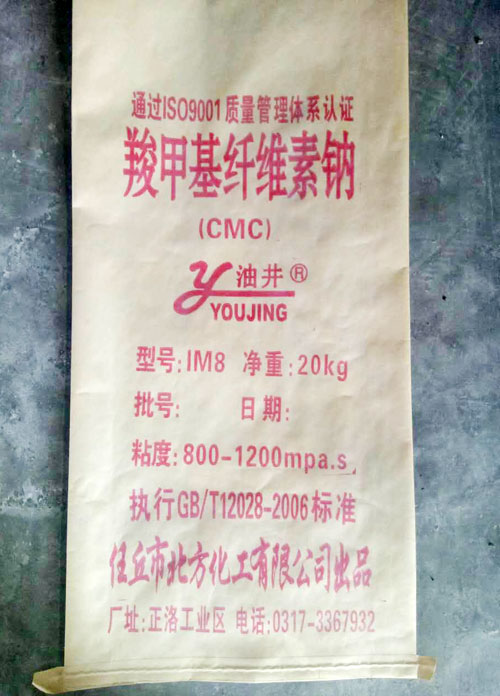 通过ISO9001质量管理体系认证
羧甲基纤维素钠
(CMC)
油井®
YOUJING
型号:IM8 净重:20kg
批号: 日期:
粘度:800-1200mpa.s
执行GB/T12028-2006标准
任丘市北方化工有限公司出品
厂址:正洛工业区 电话:0317-3367932